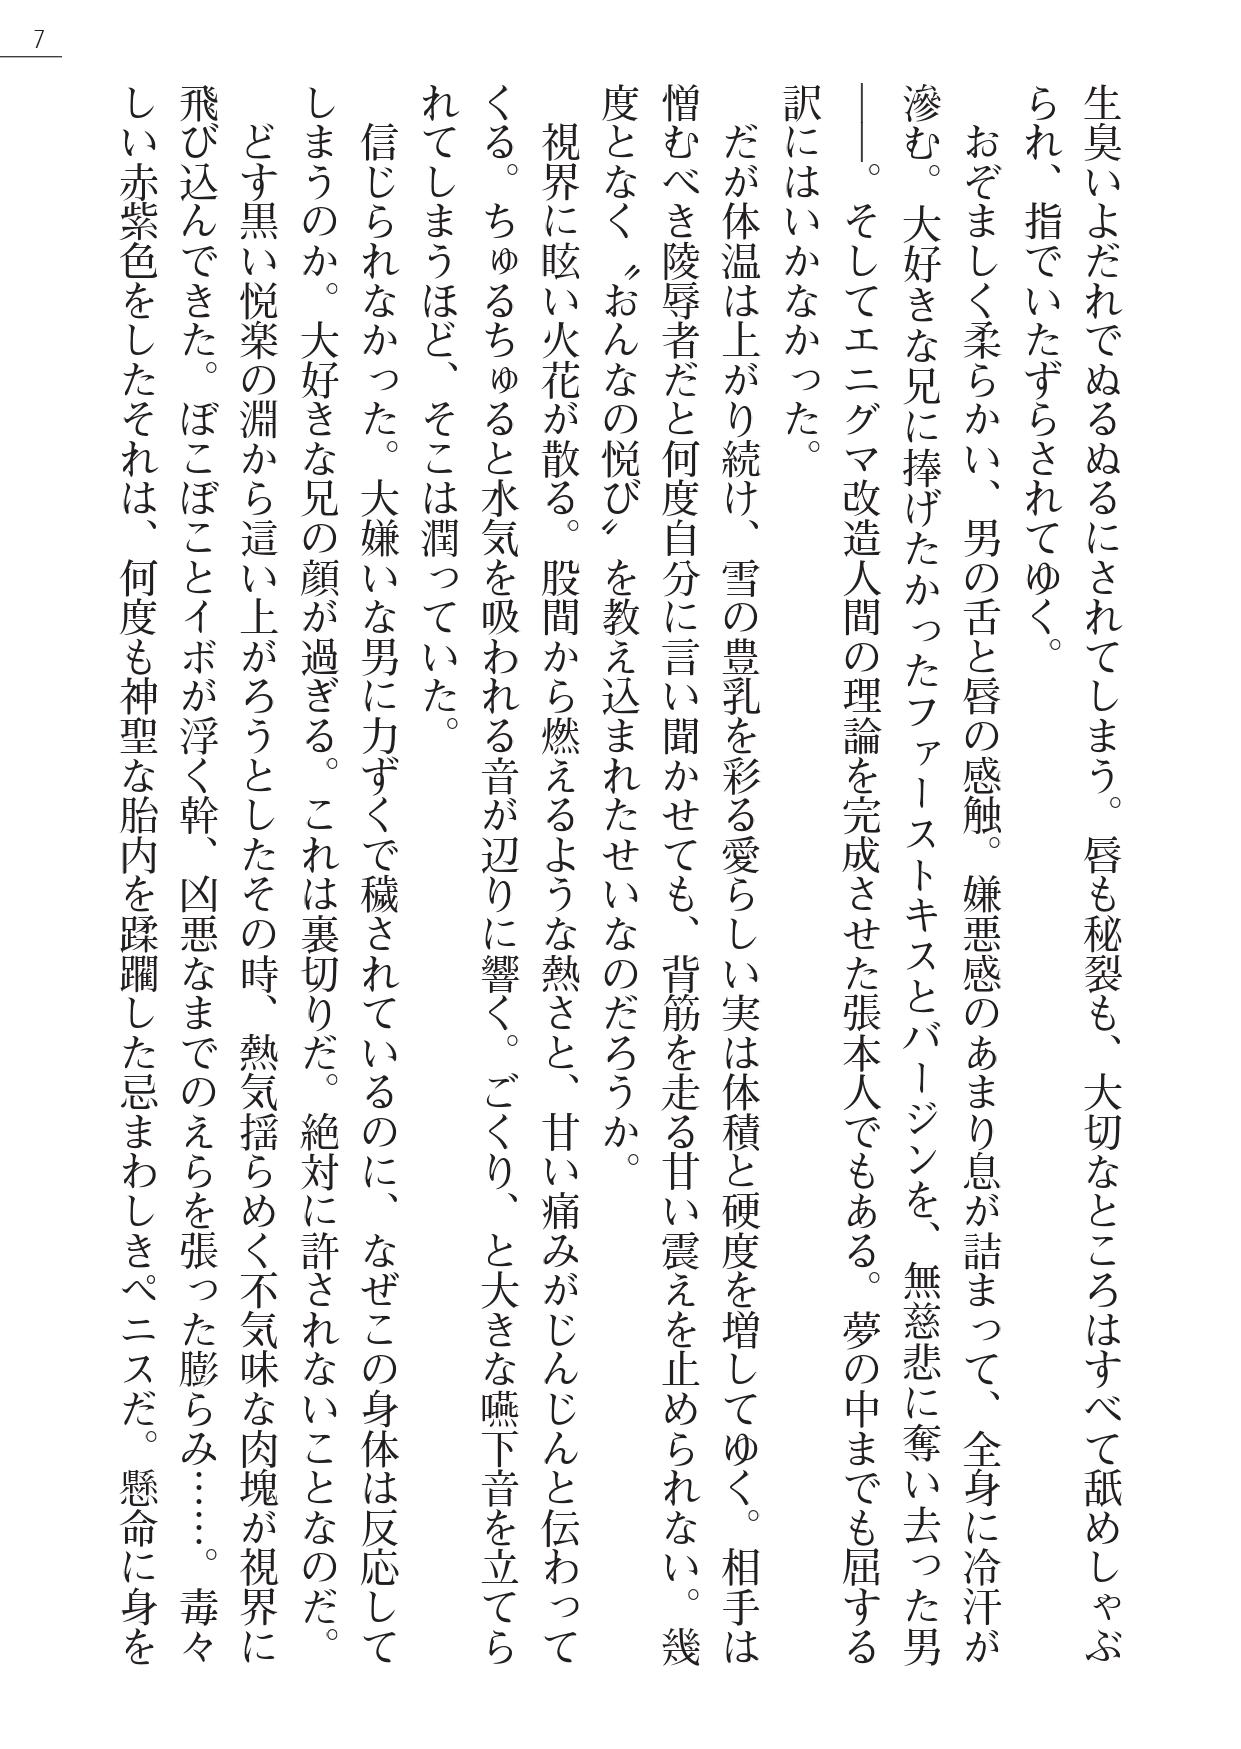 7
生臭いよだれでぬるぬるにされてしまう。唇も秘裂も、大切なところはすべて舐めしゃぶ
られ、指でいたずらされてゆく。
おぞましく柔らかい、男の舌と唇の感触。嫌悪感のあまり息が詰まって、全身に冷汗が
滲む。大好きな兄に捧げたかったファーストキスとバージンを、無慈悲に奪い去った男
――。そしてエニグマ改造人間の理論を完成させた張本人でもある。夢の中までも屈する
訳にはいかなかった。
だが体温は上がり続け、雪の豊乳を彩る愛らしい実は体積と硬度を増してゆく。相手は
憎むべき陵辱者だと何度自分に言い聞かせても、背筋を走る甘い震えを止められない。幾
度となく〝おんなの悦び〟を教え込まれたせいなのだろうか。
視界に眩い火花が散る。股間から燃えるような熱さと、甘い痛みがじんじんと伝わって
くる。ちゅるちゅると水気を吸われる音が辺りに響く。ごくり、と大きな嚥下音を立てら
れてしまうほど、そこは潤っていた。
信じられなかった。大嫌いな男に力ずくで穢されているのに、なぜこの身体は反応して
しまうのか。大好きな兄の顔が過ぎる。これは裏切りだ。絶対に許されないことなのだ。
どす黒い悦楽の淵から這い上がろうとしたその時、熱気揺らめく不気味な肉塊が視界に
飛び込んできた。ぼこぼことイボが浮く幹、凶悪なまでのえらを張った膨らみ……。毒々
しい赤紫色をしたそれは、何度も神聖な胎内を蹂躙した忌まわしきペニスだ。懸命に身を